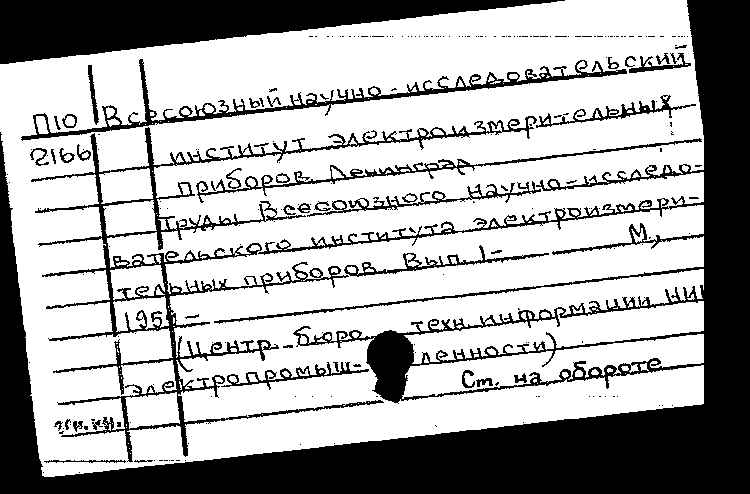 П10 Всесоюзный научно-исследовательский
2166 институт электроизмерительных
приборов. Ленинград
Труды Всесоюзного научно-исследо-
вательского института электроизмери-
тельных приборов. Вып. 1- М.,
1959-
(Центр. бюро техн. информации НИИ
электропромыш-ленности).
См. на обороте